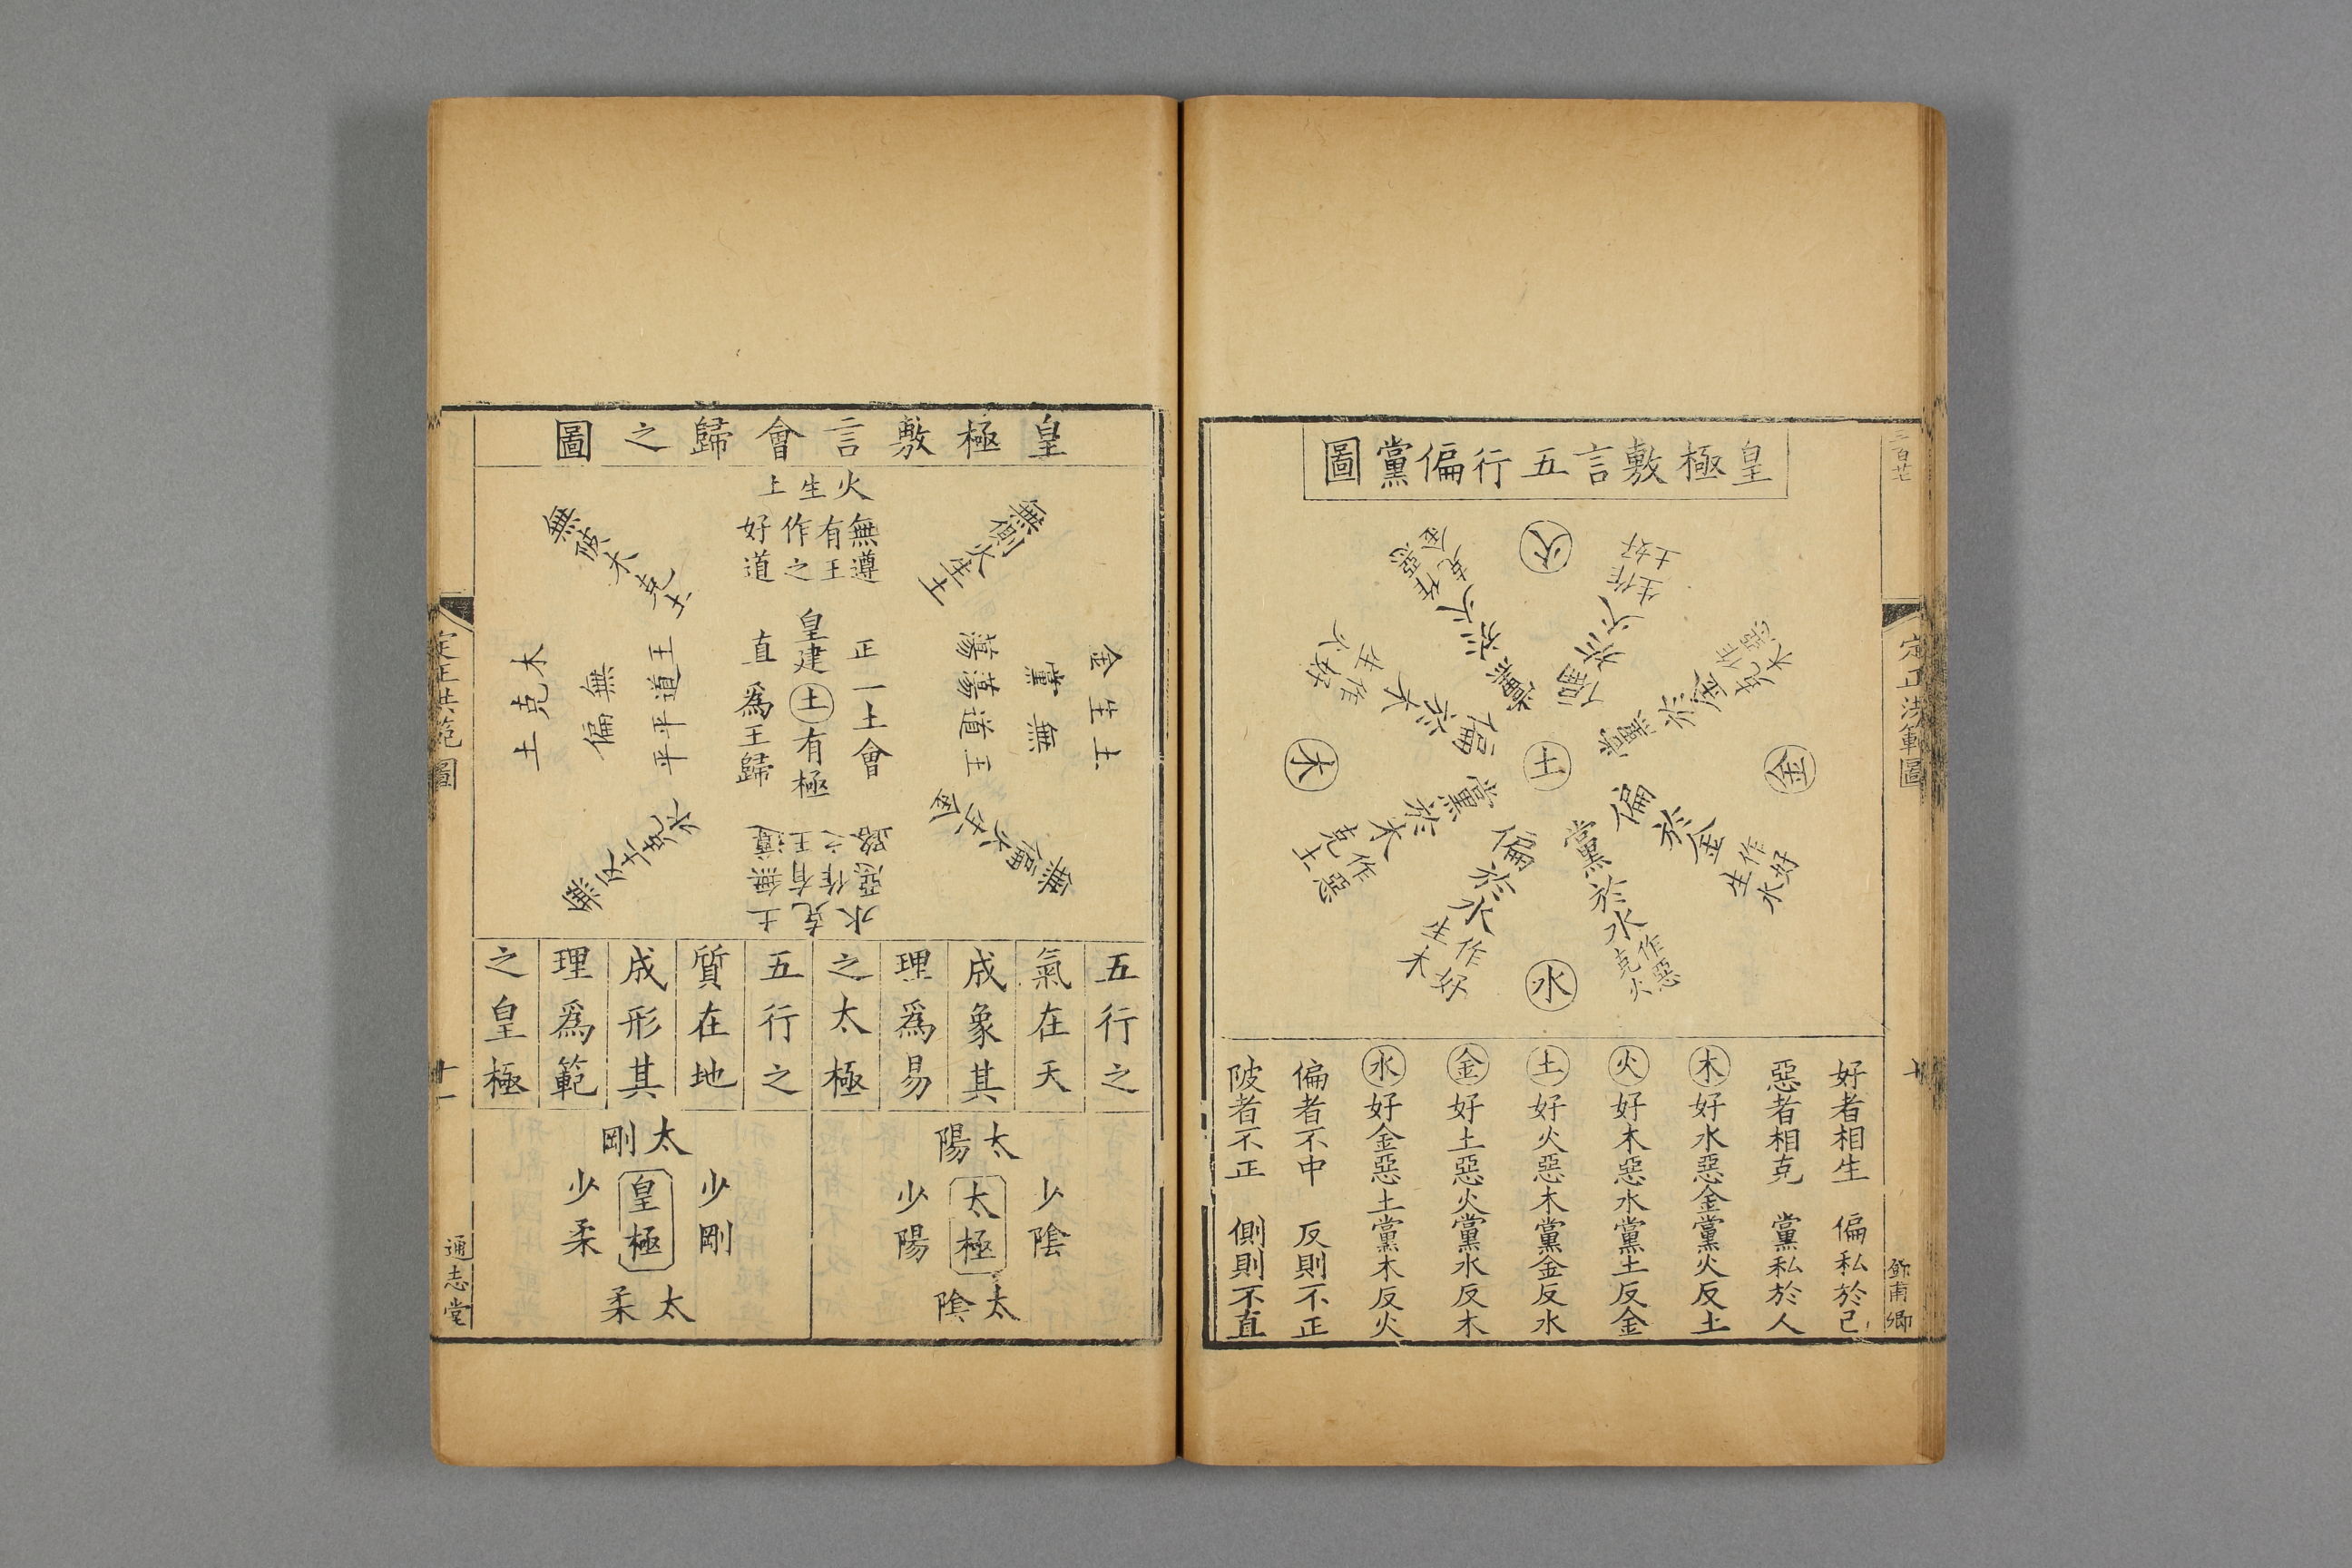 皇極敷言五行偏黨圖
火
偏於火
生土
作好
黨於火
克金
作惡
金
偏於金
生水
作好
黨於金
克木
作惡
土
木
偏於木
生火
作好
黨於木
克土
作惡
水
偏於水
生木
作好
黨於水
克火
作惡
好者相生 偏私於己
惡者相克 黨私於人
木好水惡金黨火反土
火好木惡水黨土反金
土好火惡木黨金反水
金好土惡火黨水反木
水好金惡土黨木反火
偏者不中 反則不正
陂者不正 側則不直
定正洪範圖
十
皇極敷言會歸之圖
火生土
無有作好
遵王之道
無側火生土
無陂木克土
金生土
無黨
王道蕩蕩
皇建土有極
正
一土會
直
為王歸
王道平平
無偏
木克土
水克土
無有作惡
遵王之路
無反
五行之
氣在天
成象其
理爲易
之太極
五行之
質在地
成形其
理爲範
之皇極
太陽
少陰
太極
少陽
太陰
太剛
少剛
皇極
少柔
太柔
定正洪範圖
十一
通志堂